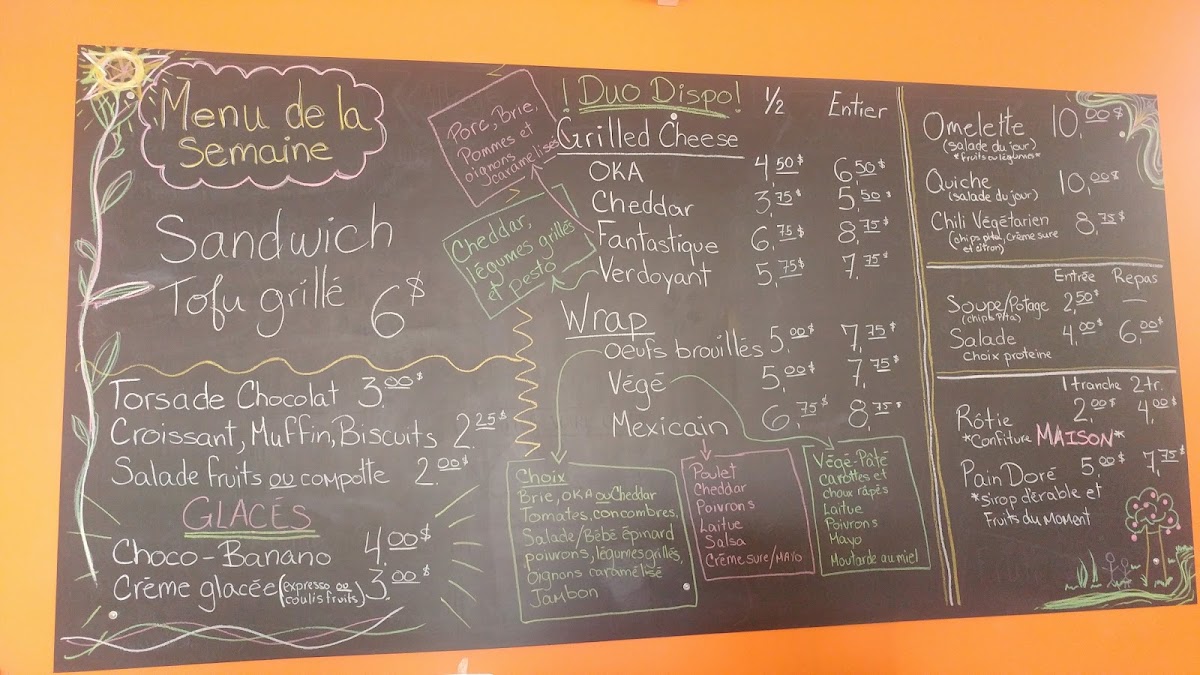 Menu de la
semaine
Sandwich
Tofu grillé 6$
Torsade Chocolat 3.00$
Croissant, Muffin, Biscuits 2.25$
Salade fruits ou compotte 2.00$
GLACÉS
Choco-Banano 4.00$
Crème glacée (expresso ou
coulis fruits) 3.00$
Porc, Brie,
Pommes et
oignons
caramelisés
Cheddar,
légumes grillés
et pesto
! Duo Dispo! 1/2 Entier
Grilled Cheese
OKA 4,50$ 6,50$
Cheddar 3,75$ 5,50$
Fantastique 6,75$ 8,75$
Verdoyant 5,75$ 7,75$
Wrap
Oeufs brouillés 5,00$ 7,75$
Végé 5,00$ 7,75$
Mexicain 6,75$ 8,75$
Choix
Brie, OKA ou Cheddar
Tomates, concombres,
Salade/Bébé épinard
poivrons, légumes grillés,
Oignons caramélisé
Jambon
Poulet
Cheddar
Poivrons
Laitue
Salsa
Crème sure/MAYO
Végé-Pâté
carottes et
choux râpés
Laitue
Poivrons
Mayo
Moutarde au miel
Omelette 10,00$
(salade du jour)
*fruits ou légumes*
Quiche 10,00$
(salade du jour)
Chili Végétarien 8,75$
(chips pita, Crème sure
et citron)
Entrée Repas
Soupe/Potage 2,50$ —
(chips Pita)
Salade 4,00$ 6,00$
Choix proteine
1 tranche 2 tr.
Rôtie 2,00$ 4,00$
*Confiture MAISON*
Pain Doré 5,00$ 7,75$
*sirop dérable et
Fruits du Moment